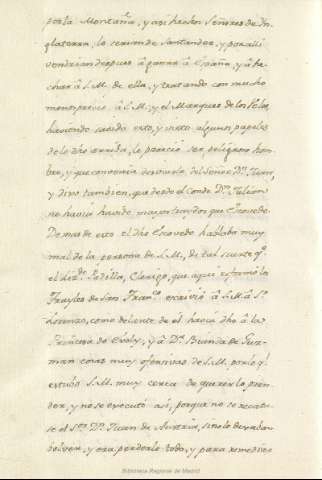 por la Montaña, y asi hechos Señores de In-
glaterra, lo serian de Santander, y por alli
vendrian despues á ganar á España, y á he-
char á S.M. de ella, y tratando con mucho
menosprecio á S.M.; y el Marques de los Velez,
haviendo sabido esto, y visto algunos papeles
de lo dho arriba, le parecio ser peligroso hom-
bre, y que convenia desviarlo del Señor Dn. Juan,
y dixo tambien, que desde el Conde Dn. Julian
no havia havido mayor traydor que Escovedo.
Demas de esto el dho Escovedo hablaba muy
mal de la persona de S.M., de tal suerte qe.
el Lizdo. Padilla, Clerigo, que aqui reformó los
Frayles de San Franco. escrivió á S.M. á Sn.
Lorenzo, como delante de el havia dho á la
Princesa de Evoly, y á Da. Buenda de Guz-
man cosas muy ofensivas de S.M. por lo ql.
estubo S.M. muy cerca de quererlo pren-
der, y no se executó asi, porque no se recata-
se el Sor. Dn. Juan de Austria, si no le dexaban
bolver, y era perderlo todo, y para remediar
Biblioteca Regional de Madrid